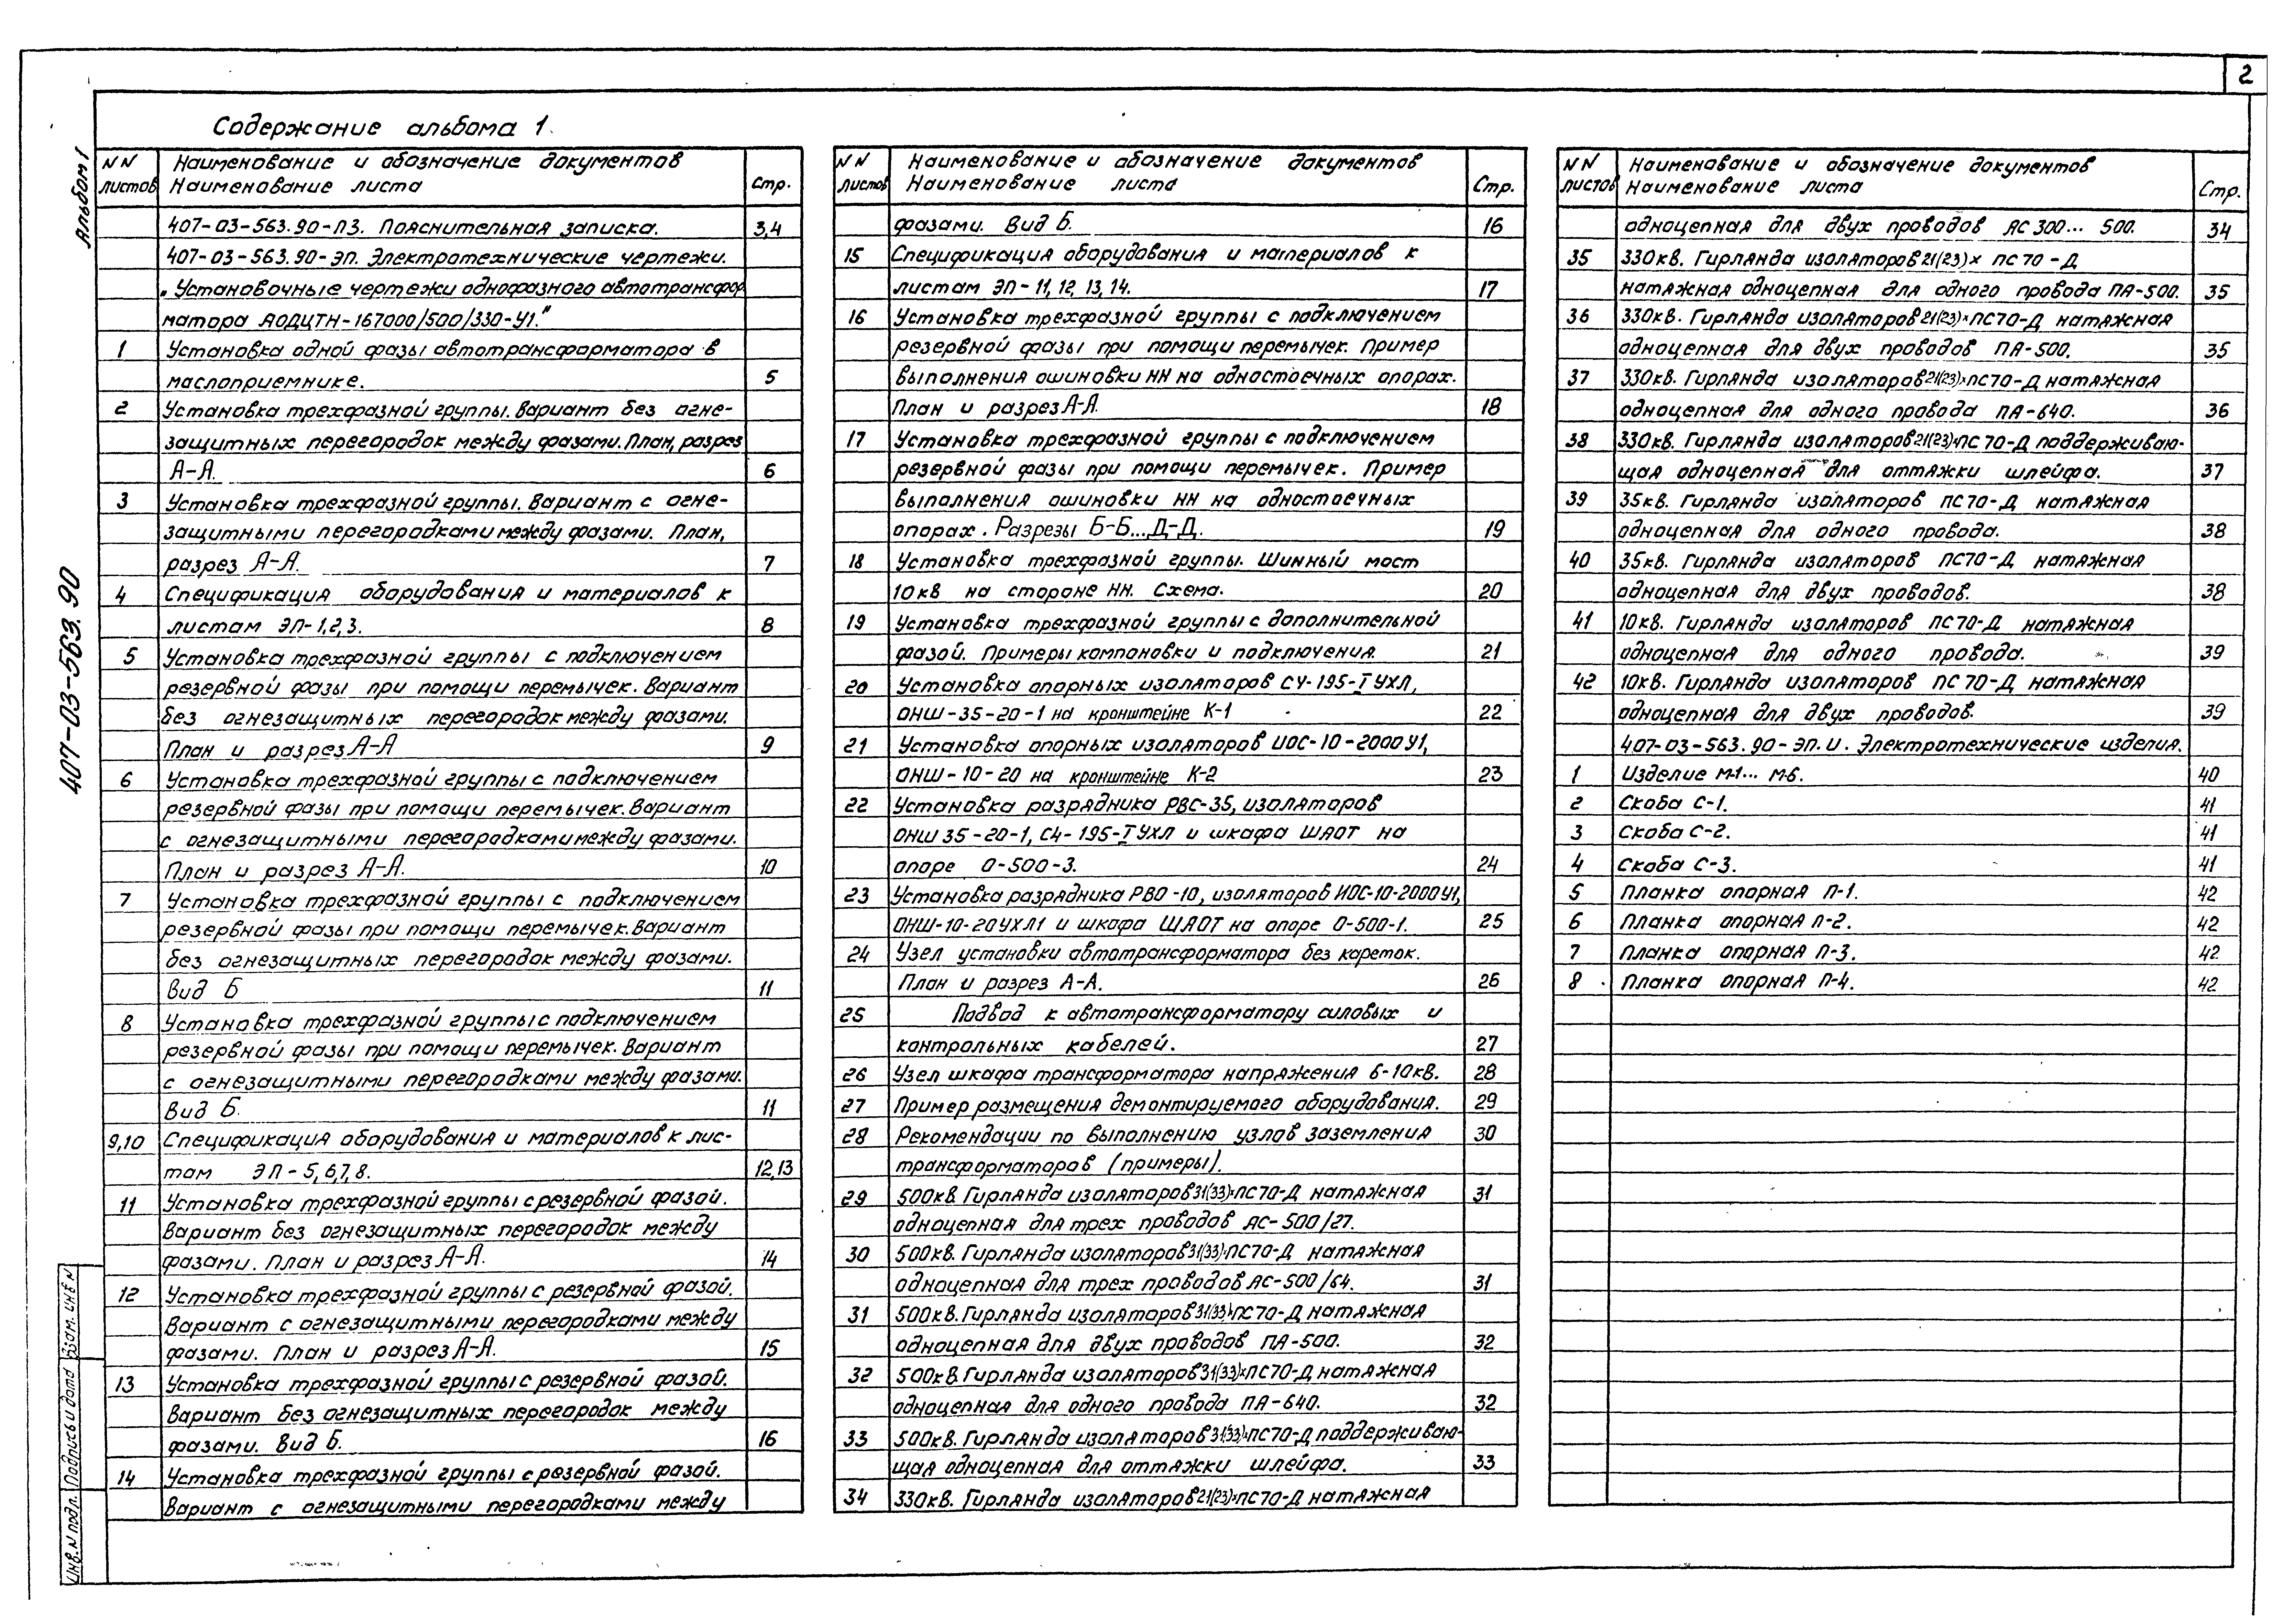 2
Содержание альбома 1.
Альбом 1
407-03-563.90
NN листов
Наименование и обозначение документов
Наименование листа
Стр.
407-03-563.90-ПЗ. Пояснительная записка. 3,4
407-03-563.90-ЭП. Электротехнические чертежи.
„Установочные чертежи однофазного автотрансфор
матора АОДЦТН-167000/500/330-У1."
1 Установка одной фазы автотрансформатора в
маслоприемнике. 5
2 Установка трехфазной группы. Вариант без огне-
защитных перегородок между фазами. План, разрез
А-А. 6
3 Установка трехфазной группы. Вариант с огне-
защитными перегородками между фазами. План,
разрез А-А. 7
4 Спецификация оборудования и материалов к
листам ЭП-1,2,3. 8
5 Установка трехфазной группы с подключением
резервной фазы при помощи перемычек. Вариант
без огнезащитных перегородок между фазами.
План и разрез А-А 9
6 Установка трехфазной группы с подключением
резервной фазы при помощи перемычек. Вариант
с огнезащитными перегородками между фазами.
План и разрез А-А. 10
7 Установка трехфазной группы с подключением
резервной фазы при помощи перемычек. Вариант
без огнезащитных перегородок между фазами.
Вид Б 11
8 Установка трехфазной группы с подключением
резервной фазы при помощи перемычек. Вариант
с огнезащитными перегородками между фазами.
Вид Б. 11
9,10 Спецификация оборудования и материалов к лис-
там ЭП-5,6,7,8. 12,13
11 Установка трехфазной группы с резервной фазой.
Вариант без огнезащитных перегородок между
фазами. План и разрез А-А. 14
12 Установка трехфазной группы с резервной фазой.
Вариант с огнезащитными перегородками между
фазами. План и разрез А-А. 15
13 Установка трехфазной группы с резервной фазой.
Вариант без огнезащитных перегородок между
фазами. Вид Б. 16
14 Установка трехфазной группы с резервной фазой.
Вариант с огнезащитными перегородками между
NN листов
Наименование и обозначение документов
Наименование листа
Стр.
фазами. Вид Б. 16
15 Спецификация оборудования и материалов к
листам ЭП-11, 12, 13, 14. 17
16 Установка трехфазной группы с подключением
резервной фазы при помощи перемычек. Пример
выполнения ошиновки НН на одностоечных опорах.
План и разрез А-А. 18
17 Установка трехфазной группы с подключением
резервной фазы при помощи перемычек. Пример
выполнения ошиновки НН на одностоечных
опорах. Разрезы Б-Б...Д-Д. 19
18 Установка трехфазной группы. Шинный мост
10кв на стороне НН. Схема. 20
19 Установка трехфазной группы с дополнительной
фазой. Примеры компоновки и подключения. 21
20 Установка опорных изоляторов СУ-195-I УХЛ,
ОНШ-35-20-1 на кронштейне К-1 22
21 Установка опорных изоляторов ИОС-10-2000 У1,
ОНШ-10-20 на кронштейне К-2 23
22 Установка разрядника РВС-35, изоляторов
ОНШ 35-20-1, С4-195-I УХЛ и шкафа ШАОТ на
опоре О-500-3. 24
23 Установка разрядника РВО-10, изоляторов ИОС-10-2000 У1,
ОНШ-10-20 УХЛ1 и шкафа ШАОТ на опоре О-500-1. 25
24 Узел установки автотрансформатора без кареток.
План и разрез А-А. 26
25 Подвод к автотрансформатору силовых и
контрольных кабелей. 27
26 Узел шкафа трансформатора напряжения 6-10кв. 28
27 Пример размещения демонтируемого оборудования. 29
28 Рекомендации по выполнению узлов заземления 30
трансформаторов (примеры).
29 500кв. Гирлянда изоляторов 31(33)×ПС70-Д натяжная 31
одноцепная для трех проводов АС-500/27.
30 500кв. Гирлянда изоляторов 31(33)×ПС70-Д натяжная
одноцепная для трех проводов АС-500/64. 31
31 500кв. Гирлянда изоляторов 31(33)×ПС70-Д натяжная
одноцепная для двух проводов ПА-500. 32
32 500кв. Гирлянда изоляторов 31(33)×ПС70-Д натяжная
одноцепная для одного провода ПА-640. 32
33 500кв. Гирлянда изоляторов 31(33)×ПС70-Д поддерживаю-
щая одноцепная для оттяжки шлейфа. 33
34 330кв. Гирлянда изоляторов 21(23)×ПС70-Д натяжная
NN листов
Наименование и обозначение документов
Наименование листа
Стр.
одноцепная для двух проводов АС 300... 500. 34
35 330кв. Гирлянда изоляторов 21(23)× ПС 70-Д
натяжная одноцепная для одного провода ПА-500. 35
36 330кв. Гирлянда изоляторов 21(23)×ПС70-Д натяжная
одноцепная для двух проводов ПА-500. 35
37 330кв. Гирлянда изоляторов 21(23)×ПС70-Д натяжная
одноцепная для одного провода ПА-640. 36
38 330кв. Гирлянда изоляторов 21(23)×ПС 70-Д поддерживаю-
щая одноцепная для оттяжки шлейфа. 37
39 35кв. Гирлянда изоляторов ПС70-Д натяжная
одноцепная для одного провода. 38
40 35кв. Гирлянда изоляторов ПС70-Д натяжная
одноцепная для двух проводов. 38
41 10кв. Гирлянда изоляторов ПС70-Д натяжная
одноцепная для одного провода. 39
42 10кв. Гирлянда изоляторов ПС 70-Д натяжная
одноцепная для двух проводов. 39
407-03-563.90-ЭП.И. Электротехнические изделия.
1 Изделие М-1... М-6. 40
2 Скоба С-1. 41
3 Скоба С-2. 41
4 Скоба С-3. 41
5 Планка опорная П-1. 42
6 Планка опорная П-2. 42
7 Планка опорная П-3. 42
8 Планка опорная П-4. 42
Инв. N подл. Подпись и дата Взам. инв N